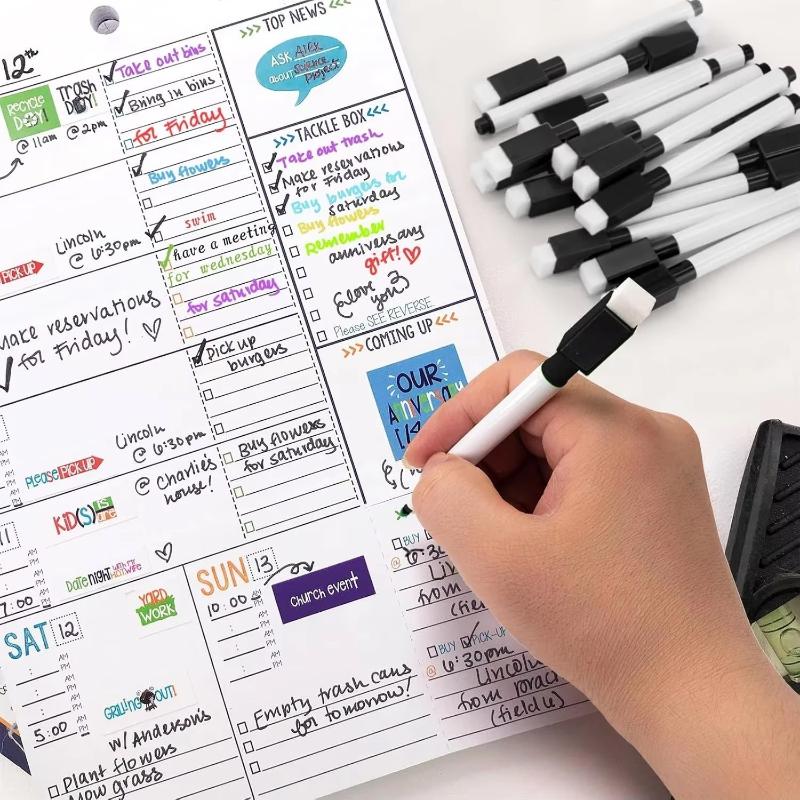 12th
RECYCLE DAY!
TRASH DAY!
@ 11am
@ 2pm
Take out bins
Bring in bins
for Friday
Buy flowers
swim
have a meeting
for wednesday
for saturday
Pick up
burgers
Buy flowers
for saturday
PICK UP
Lincoln
@ 6:30pm
Make reservations
for Friday!
PLEASE PICK UP
Lincoln
@ 6:30pm
@ Charlie's
house!
KID(S)
Date night WITH MY HOT WIFE
AM
PM
7:00
>>> TOP NEWS <<<
ASK Alex
about science
project
>>> TACKLE BOX <<<
Take out trash
Make reservations
for Friday
Buy burgers for
saturday
Buy flowers
Remember
anniversary
gift!
love
you
Please SEE REVERSE
>>> COMING UP <<<
OUR
Anniversary
SAT 12
YARD
WORK
GRILLING OUT!
5:00 AM
PM
w/ Anderson's
Plant flowers
Mow grass
SUN 13
10:00 AM
PM
Church event
Empty trash cans
for tomorrow!
BUY
from
BUY PICK-UP
@ 6:30pm
Lincoln
from
(field 6)